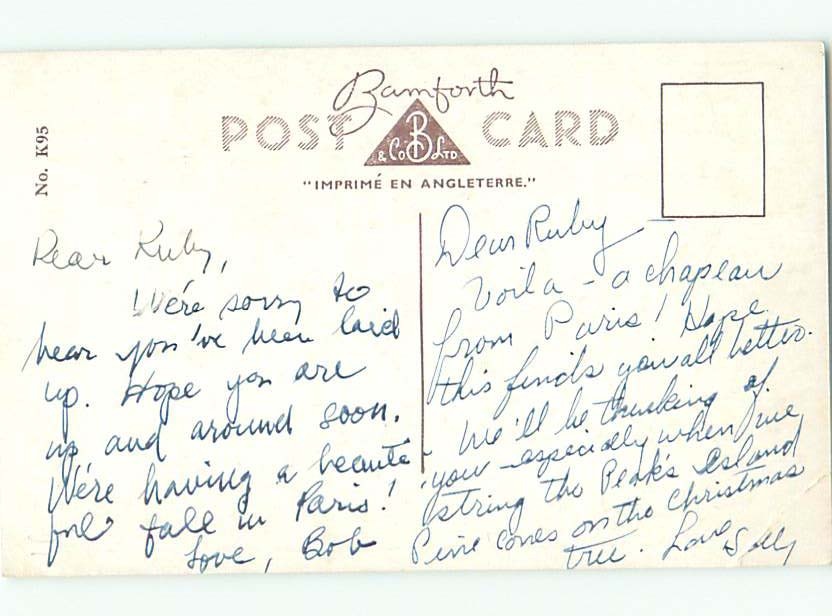 Bamforth
POST CARD
B
& Co Ltd
"IMPRIMÉ EN ANGLETERRE."
No. K95
Dear Ruby,
We're sorry to
hear you've been laid
up. Hope you are
up and around soon.
We're having a beauti
ful fall in Paris!
Love, Bob
Dear Ruby —
Voila - a chapeau
from Paris! Hope
this finds you all better.
We'll be thinking of
you especially when we
string the Peak's Island
Pine cones on the Christmas
tree. Love, Sally